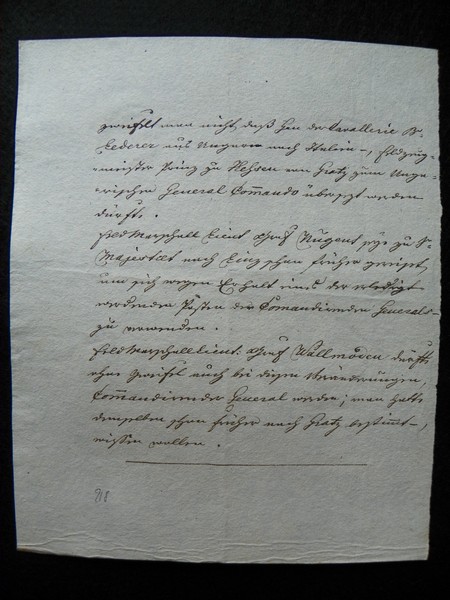 zweifelt man nicht, daß Gen. der Cavallerie B.
Lederer aus Ungarn nach Italien, Feldzeug-
meister Prinz zu Hessen von Gratz zum Unga-
rischen General Comando übersezt werden
dürfte.
Feldmarschall Lieut Graf Nugent zu S.
Majestaet nach Linz schon früher gereist,
um sich wegen Erhalt eines der erledigt
werdenden Posten des Comandirenden Generals
zu verwenden.
Feldmarschallieut. Graf Wallmoden dürfte
ohne Zweifel auch bei diesen Veränderungen,
Commandirender General werden; man hatte
denselben schon früher nach Gratz bestimmt,
wissen wollen.